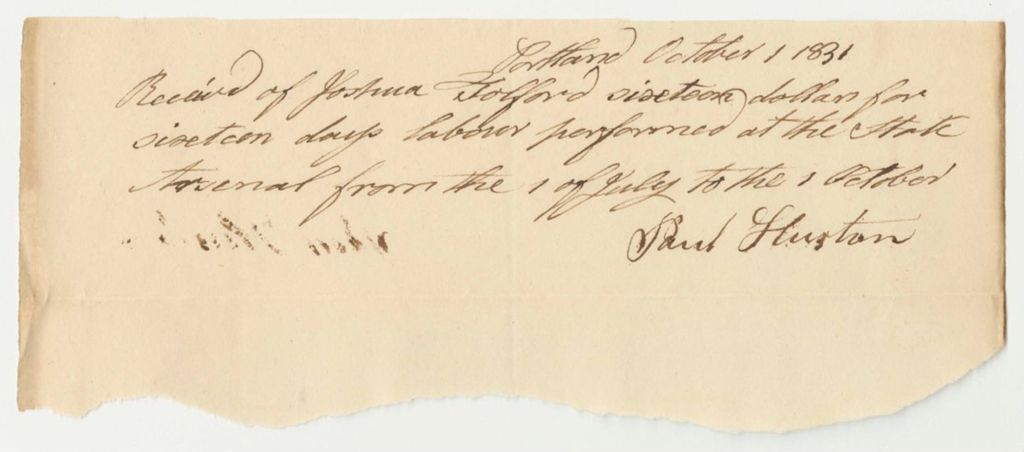 Portland October 1 1831
Receivd of Joshua Tolford sixteen dollars for
sixteen days labour performed at the State
Arsenal from the 1 of July to the 1 October
Paul Huston